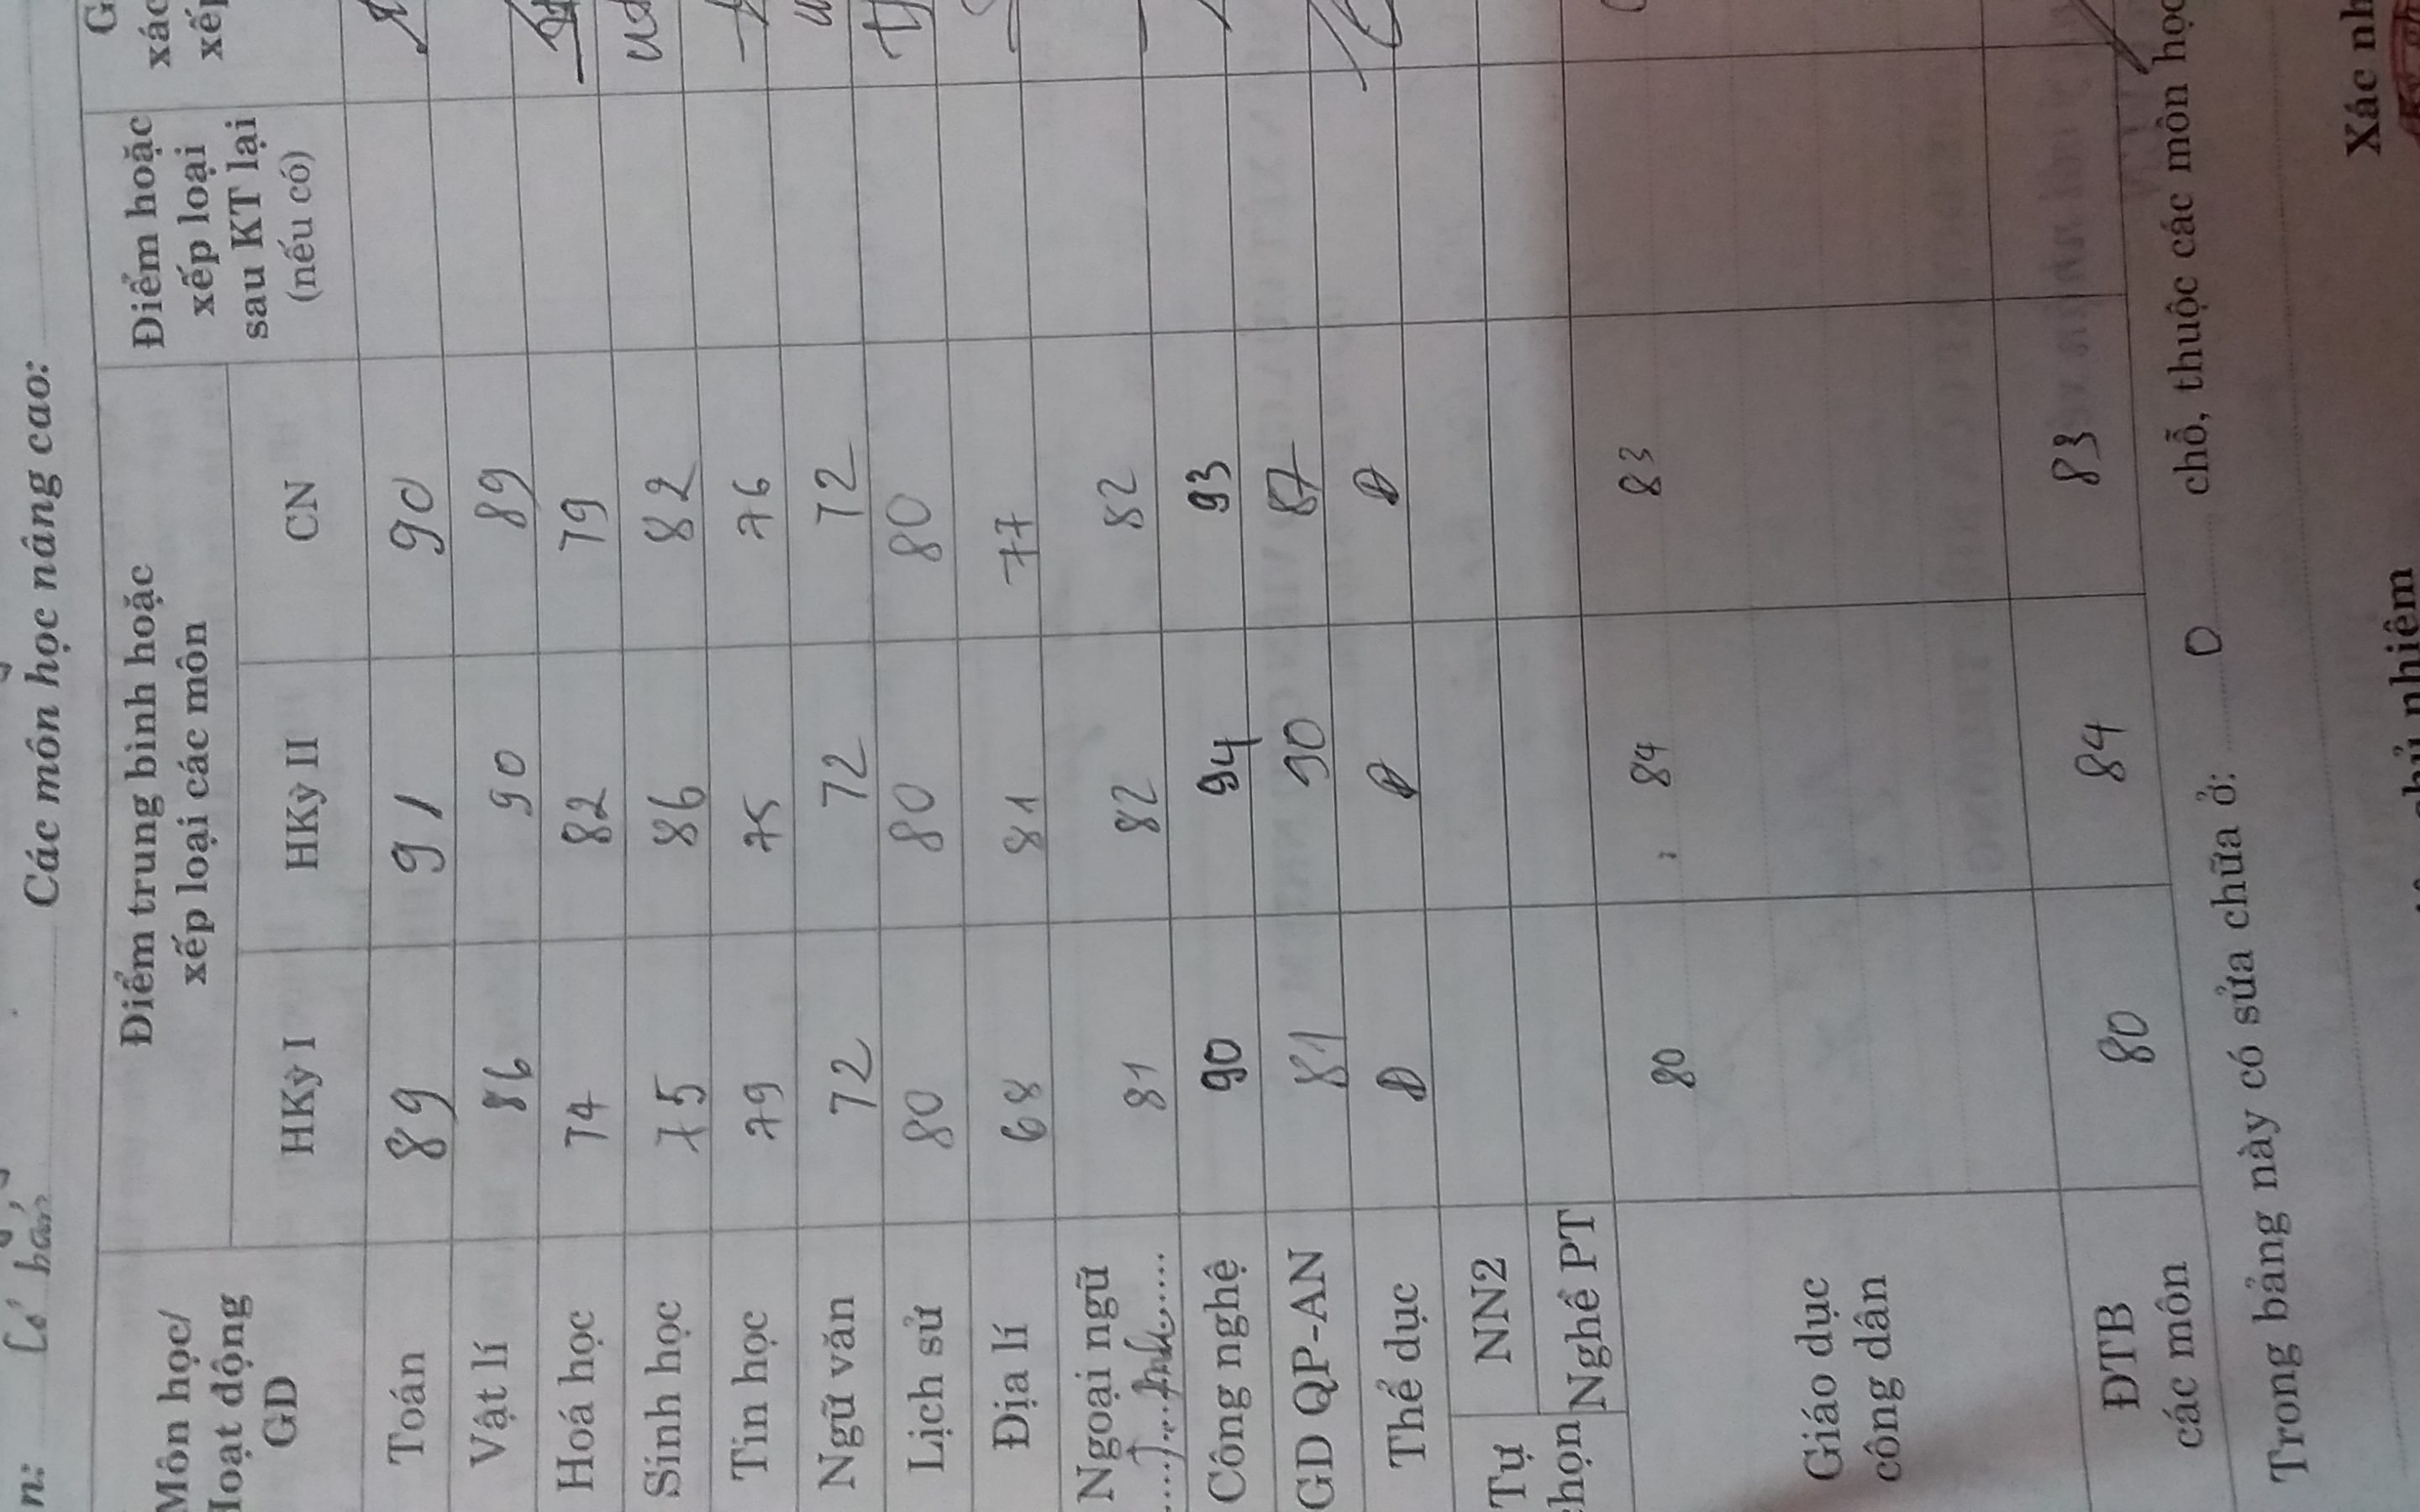 n: Cơ bản Các môn học nâng cao:
Môn học/
Hoạt động
GD
Điểm trung bình hoặc
xếp loại các môn
Điểm hoặc
xếp loại
sau KT lại
(nếu có)
HKỳ I HKỳ II CN
Toán 89 91 90
Vật lí 86 90 89
Hoá học 74 82 79
Sinh học 75 86 82
Tin học 79 75 76
Ngữ văn 72 72 72
Lịch sử 80 80 80
Địa lí 68 81 77
Ngoại ngữ
T. Anh 81 82 82
Công nghệ 90 94 93
GD QP-AN 81 90 87
Thể dục Đ Đ Đ
Tự
chọn
NN2
Nghề PT
Giáo dục
công dân
80 84 83
ĐTB
các môn
80 84 83
Trong bảng này có sửa chữa ở: 0 chỗ, thuộc các môn học
Xác nh
chủ nhiệm